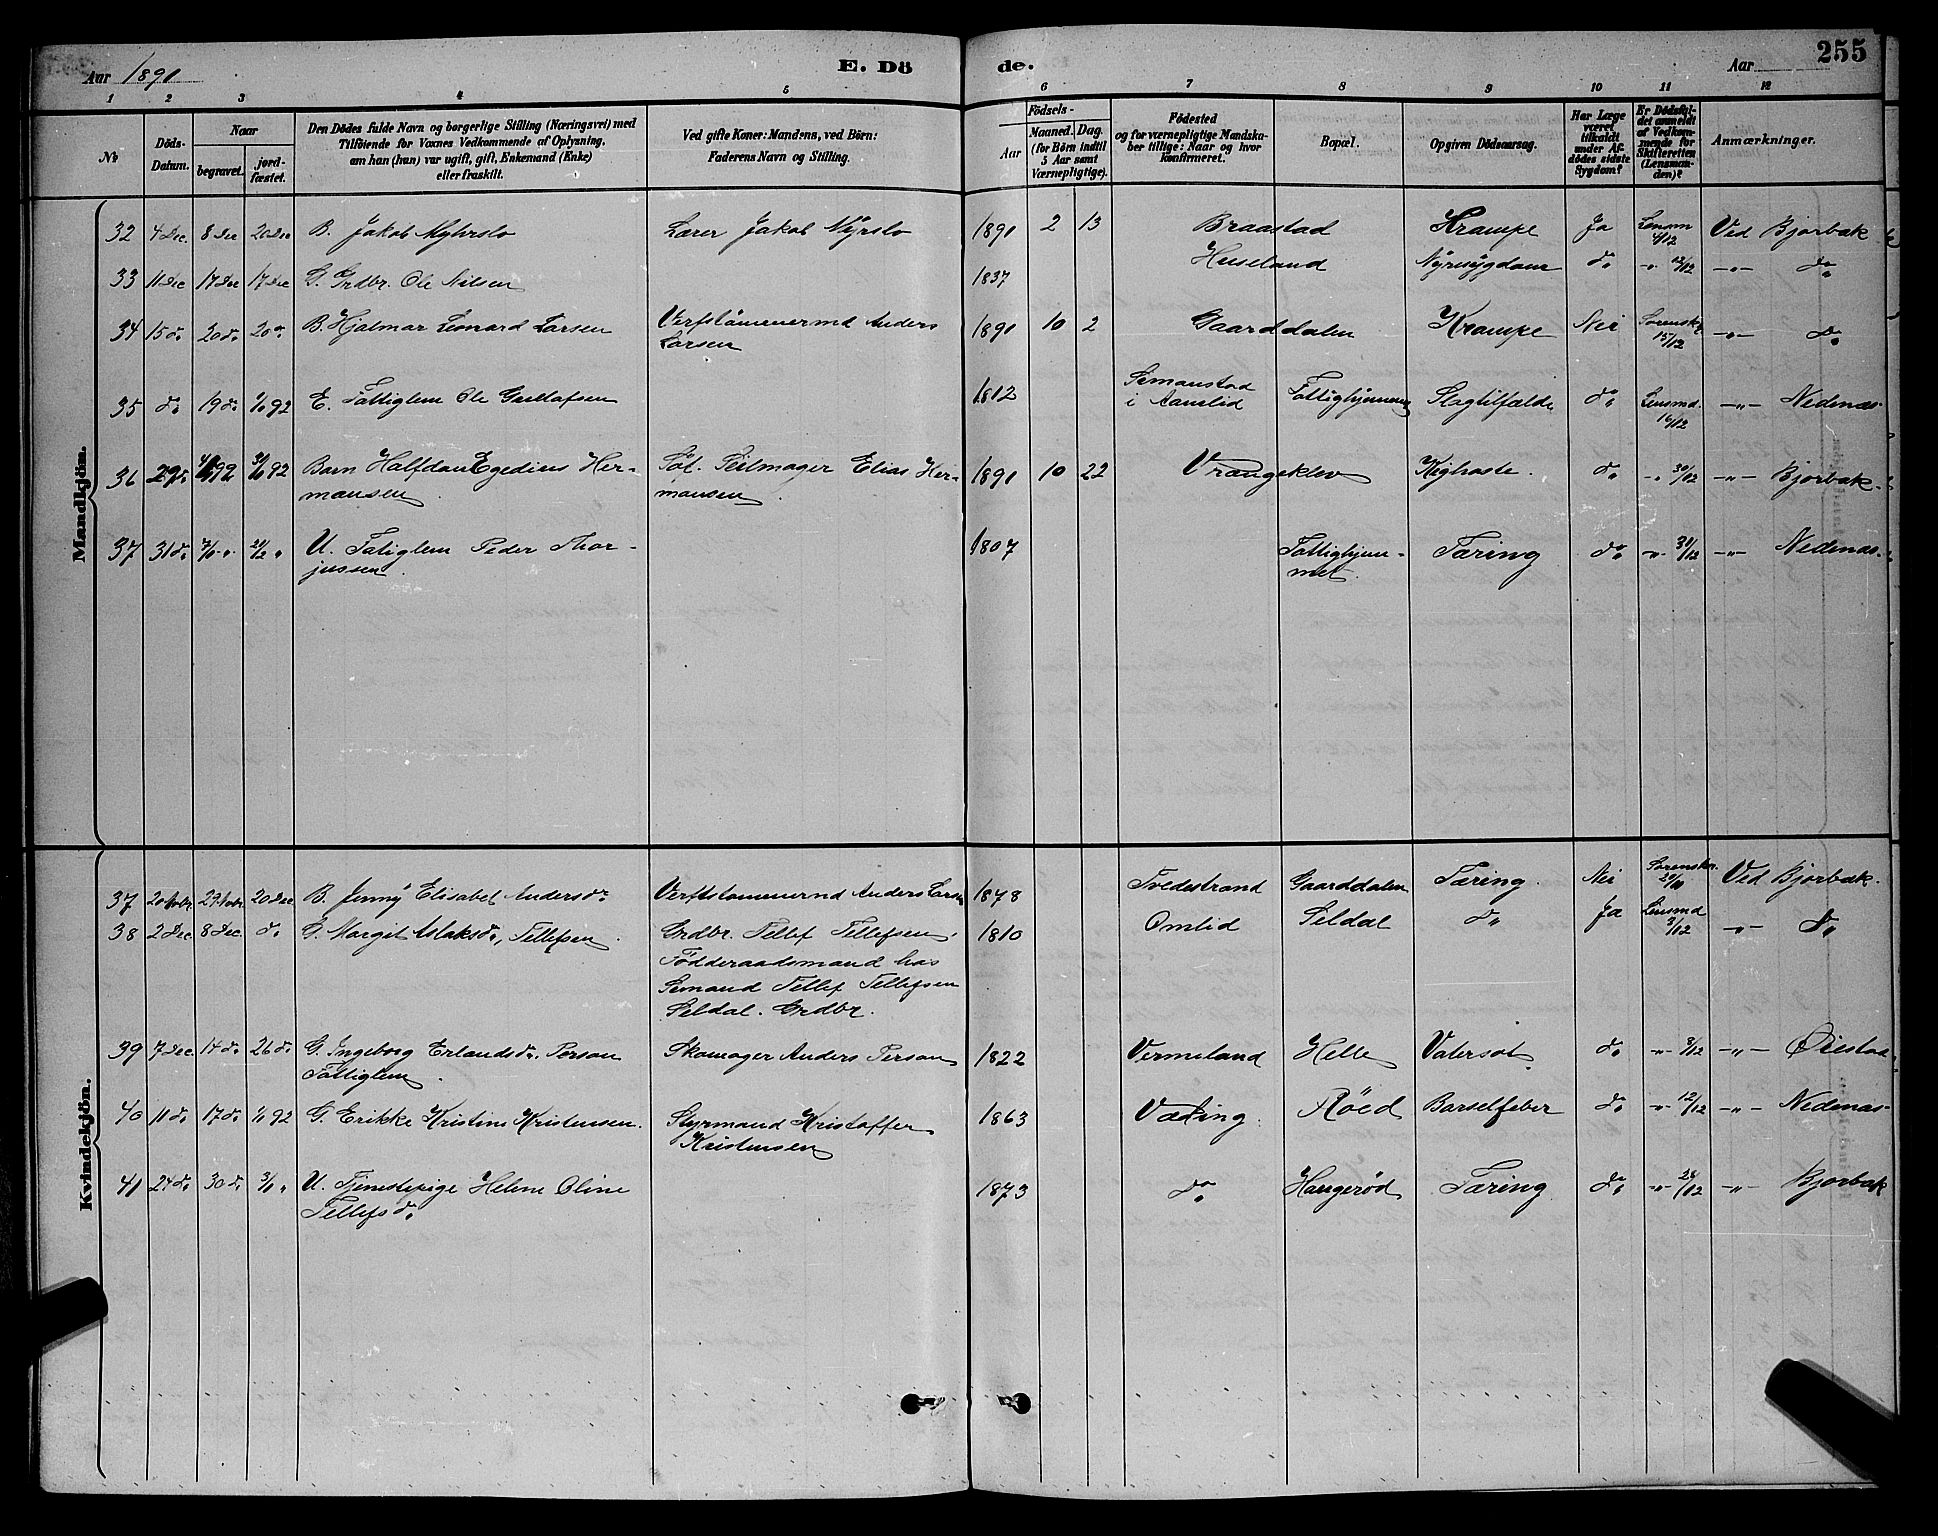 255
Aar 1891
E. Dö de.
Aar
1 2 3 4 5 6 7 8 9 10 11 12
No
Döds-Datum.
Naar
begravet.
jord-fæstet.
Den Dödes fulde Navn og borgerlige Stilling (Næringsvei) med
Tilföiende for Voxnes Vedkommende af Oplysning,
om han (hun) var ugift, gift, Enkemand (Enke)
eller fraskilt.
Ved gifte Koner: Mandens, ved Börn:
Faderens Navn og Stilling.
Födsels-
Aar
Maaned. Dag.
(for Börn indtil
5 Aar samt
Værnepligtige).
Födested
og for værnepligtige Mandska-
ber tillige: Naar og hvor
konfirmeret.
Bopæl.
Opgiven Dödsaarsag.
Har Læge
været
tilkaldt
under Af-
dödes sidste
Sygdom?
Er Dödsfal-
det anmeldt
af Vedkom-
mende for
Skifteretten
(Lensman-
den)?
Anmærkninger.
Mandkjön.
32 4 Dec. 8 Dec 20 Dec B. Jakob Myhrslo Lærer Jakob Myrslo 1891 2 13 Braastad Krampe Ja Lensm 4/12 Ved Bjorbak
33 11 Dec 17 Dec 17 Dec G. Grdbr. Ole Nilsen 1837 Huseland Nyresygdom do -"- 12/12 -"- do
34 15 do 20 do 20 do B. Hjalmar Leonard Larsen Verftstömmermd Anders 1891 10 2 Gaarddalen Krampe Nei Sorenskr 15/12 -"- do
Larsen
35 do 19 do 1/1 92 E. Fattiglem Ole Gustafsen 1812 Simonstad
i Aamlid Fattighjemmet Slagtilfælde do Lensmd. 16/12 -"- Nedenæs
36 29 do 92 92 Barn Halfdan Egedius Her- Söl. Seilmager Elias Her- 1891 10 22 Vrangeklev Kighoste. do -"- 30/12 -"- Bjorbak
mansen. mansen.
37 31 do U. Fatiglem Peder Thor- 1807 Fattighjem- Tæring do -"- 31/12 -"- Nedenæs
jussen. met.
Kvindekjön.
37 20 Novbr. 29 Novbr. 20 Dec B. Jenny Elisabet Andersdr Verftstömmermd Anders Larsen 1878 Tvedestrand Gaarddalen Tæring Nei Sorenskr. Ved Bjorbak
38 2 Dec 8 Dec. do G. Margit Aslaksd., Tellefsen. Grdbr. Tellef Tellefsen, 1810 Omlid Seldal do Ja Lensmd 3/12 -"- do
Födderaadsmand hos
Sömand Tellef Tellefsen
Seldal. Grdbr.
39 7 Dec. 14 do 26 do G. Ingeborg Erlandsd., Person Skomager Anders Person 1822 Vermeland Helle Vatersot do -"- 8/12 -"- Öiestad
Fattiglem.
40 11 do 17 do 1/1 92 G. Erikke Kristine Kristensen. Styrmand Kristoffer 1863 Væding. Röed Barselfeber do -"- 12/12 -"- Nedenæs
Kristensen
41 24 do 30 do 3/1 " U. Tjenestepige Helene Oline 1873 do Haugeröd Tæring do -"- 28/12 -"- Bjorbak
Tellefsd.